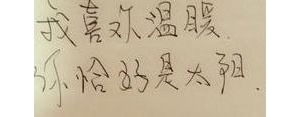 我喜欢温暖.
你恰好是太阳.